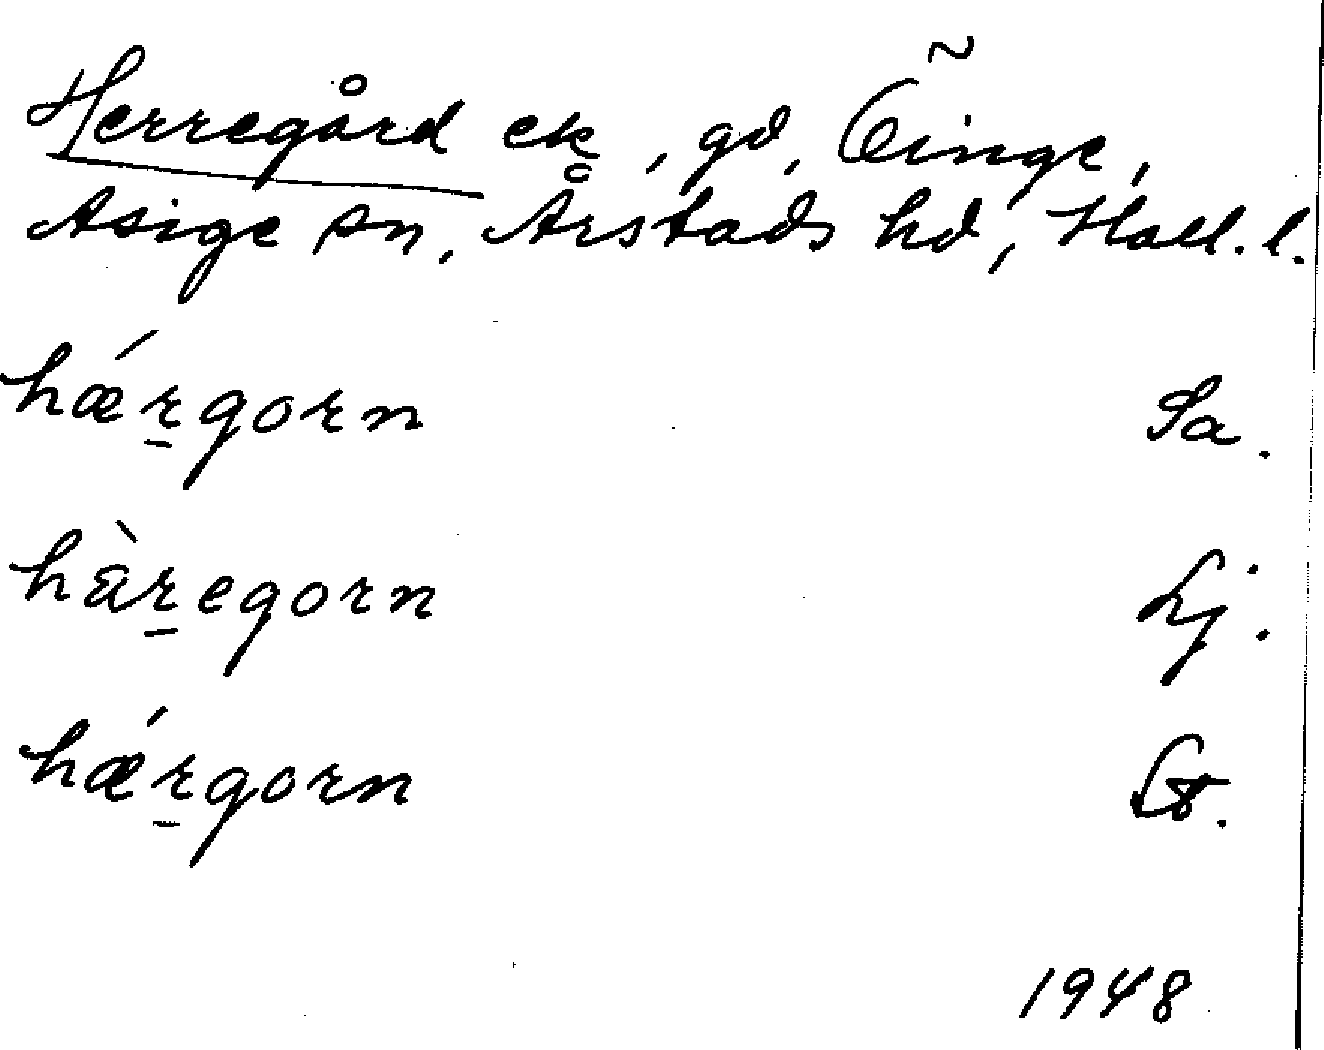 Herregård ek, gd, Öinge,
Asige sn, Årstads hd, Hall. l.
hǽr̲gorn Sa.
hàr̲egorn Lj.
hǽr̲gorn
1948